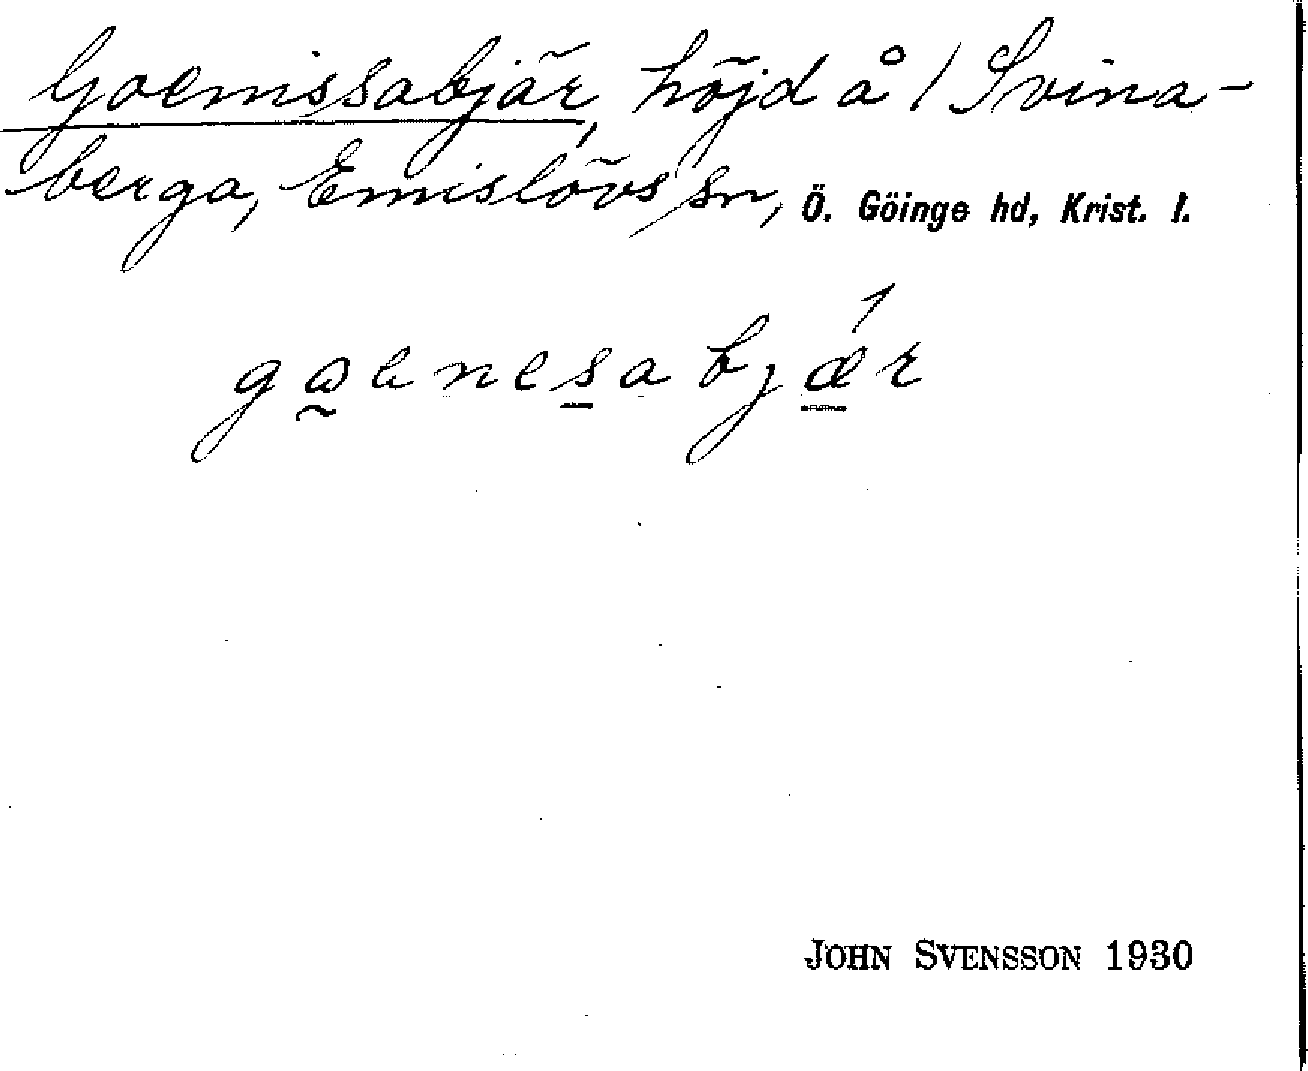 Goenissabjär, höjd å / Svina-
berga, Emislövs sn, Ö. Göinge hd, Krist. l.
gaenesabjǽr
JOHN SVENSSON 1930